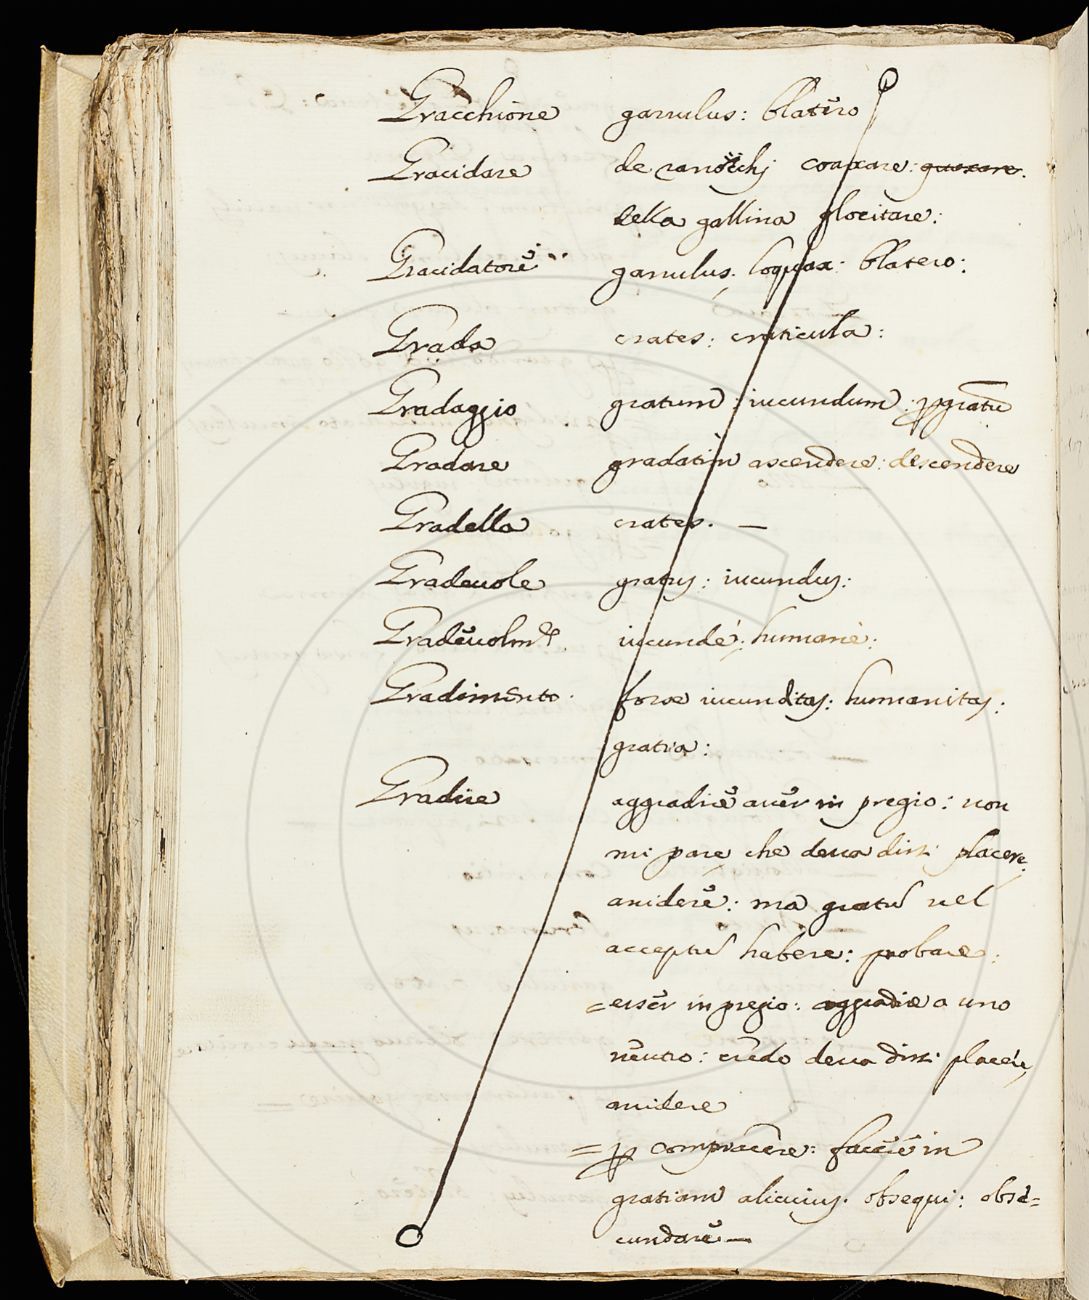 Gracchione garrulus: blatero
Gracidare de ranocchj coaxare: quaxare.
della gallina glocitare:
Gracidatore garrulus. loquax: blatero:
Grada crates: craticula:
Gradaggio gratum: iucundum: pgratū
Gradare gradatim ascendere: descendere
Gradella crates. —
Gradeuole gratus: iucundus:
Gradeuolmte. iucundè: humanè:
Gradimento. iucunditas: humanitas:
gratia:
Gradire aggradire auer in pregio: non
mi pare che deua dirsi placere,
arridere: ma gratū vel
acceptū habere: probare:
= esser in pregio: aggradire a uno
neutro: credo deua dirsi placere,
arridere
= p compiacere: facere in
gratiam alicuius. obsequi: obse=
cundare —